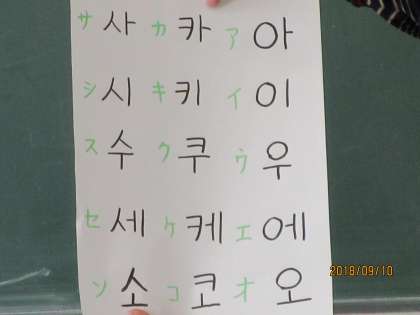 サ 사 カ 카 ア 아
シ 시 キ 키 イ 이
ス 수 ク 쿠 ウ 우
セ 세 ケ 케 エ 에
ソ 소 コ 코 オ 오
2018/09/10